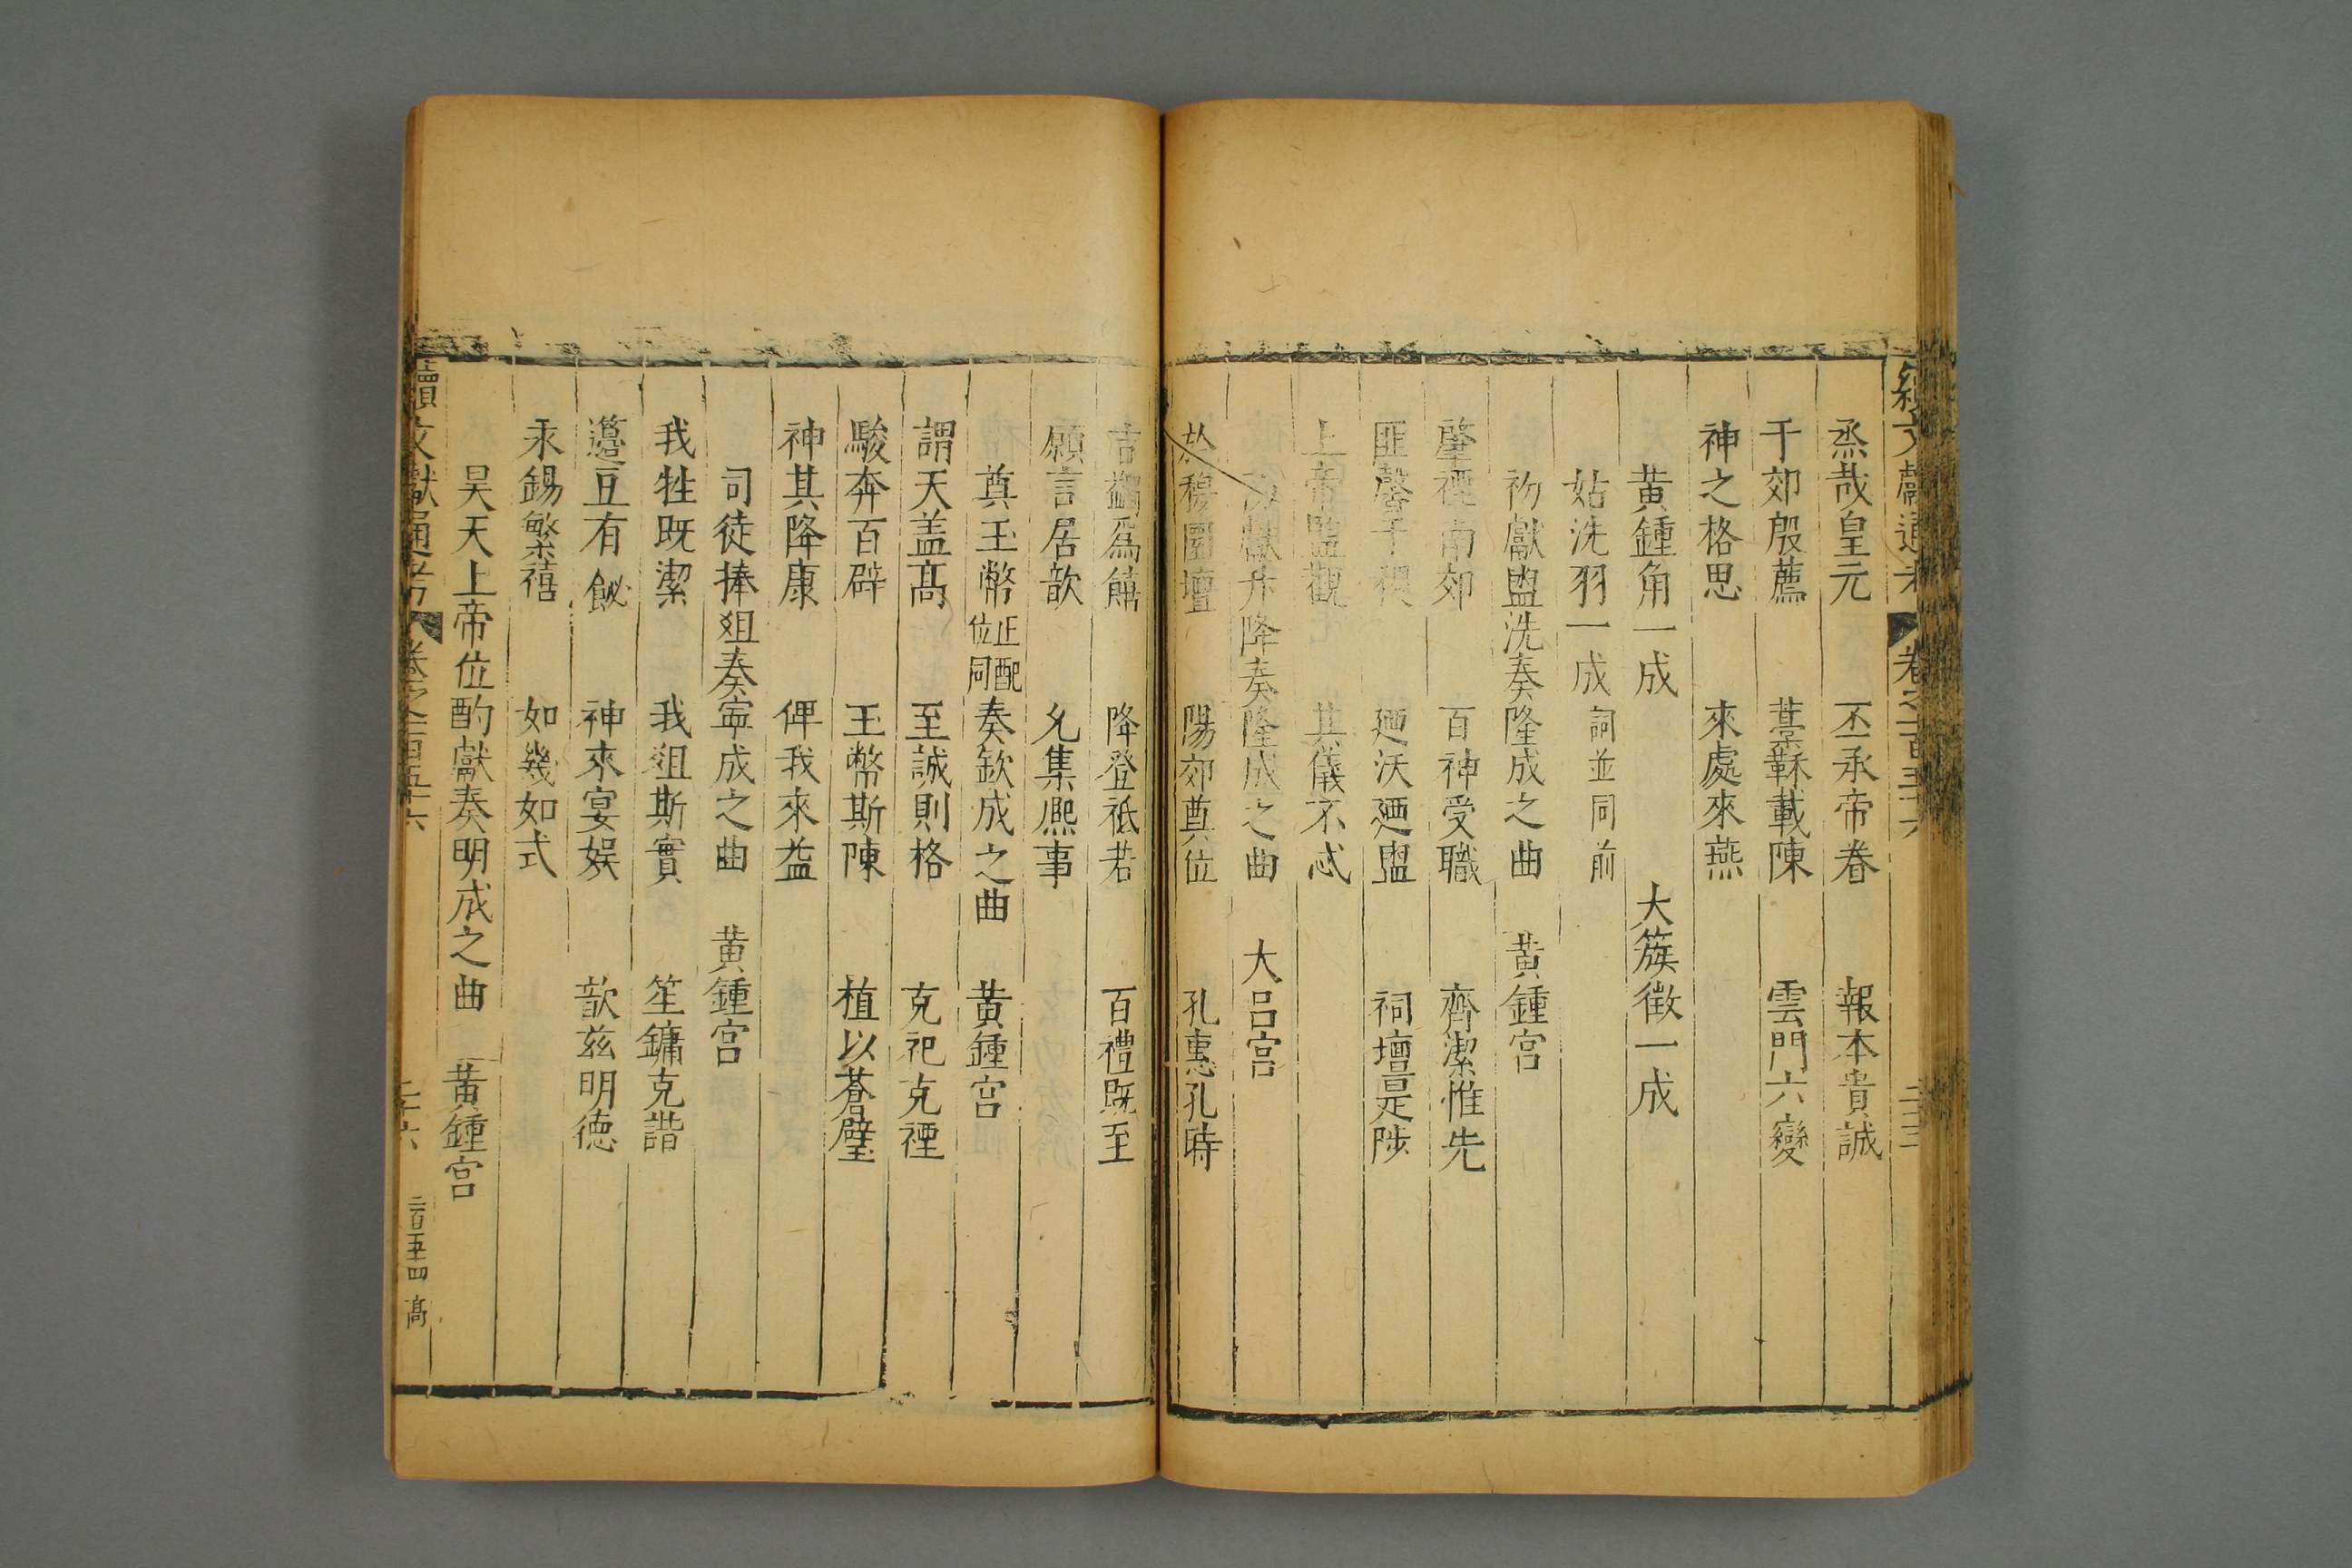 續文獻通考 卷之一百五十六
烝哉皇元 丕承帝眷 報本貴誠
于郊殷薦 藁鞂載陳 雲門六變
神之格思 來處來燕
黄鍾角一成 大簇徵一成
姑洗羽一成 詞並同前
初獻盥洗奏隆成之曲 黄鍾宫
肇禋南郊 百神受職 齊潔惟先
匪馨于稷 廼沃廼盥 祠壇是陟
上帝監觀 其儀不忒
初獻升降奏隆成之曲 大吕宫
於穆圜壇 陽郊奠位 孔惠孔時
吉蠲爲饎 降登祗若 百禮既至
願言居歆 允集熈事
奠玉幣 正配位同 奏欽成之曲 黄鍾宫
謂天盖髙 至誠則格 克祀克禋
駿奔百辟 玉幣斯陳 植以蒼璧
神其降康 俾我來益
司徒捧俎奏寜成之曲 黄鍾宫
我牲既潔 我俎斯實 笙鏞克諧
籩豆有飶 神來宴娱 歆兹明德
永錫繁禧 如幾如式
昊天上帝位酌獻奏明成之曲 黄鍾宫
續文獻通考 卷之一百五十六 二十六 二百五十四 髙